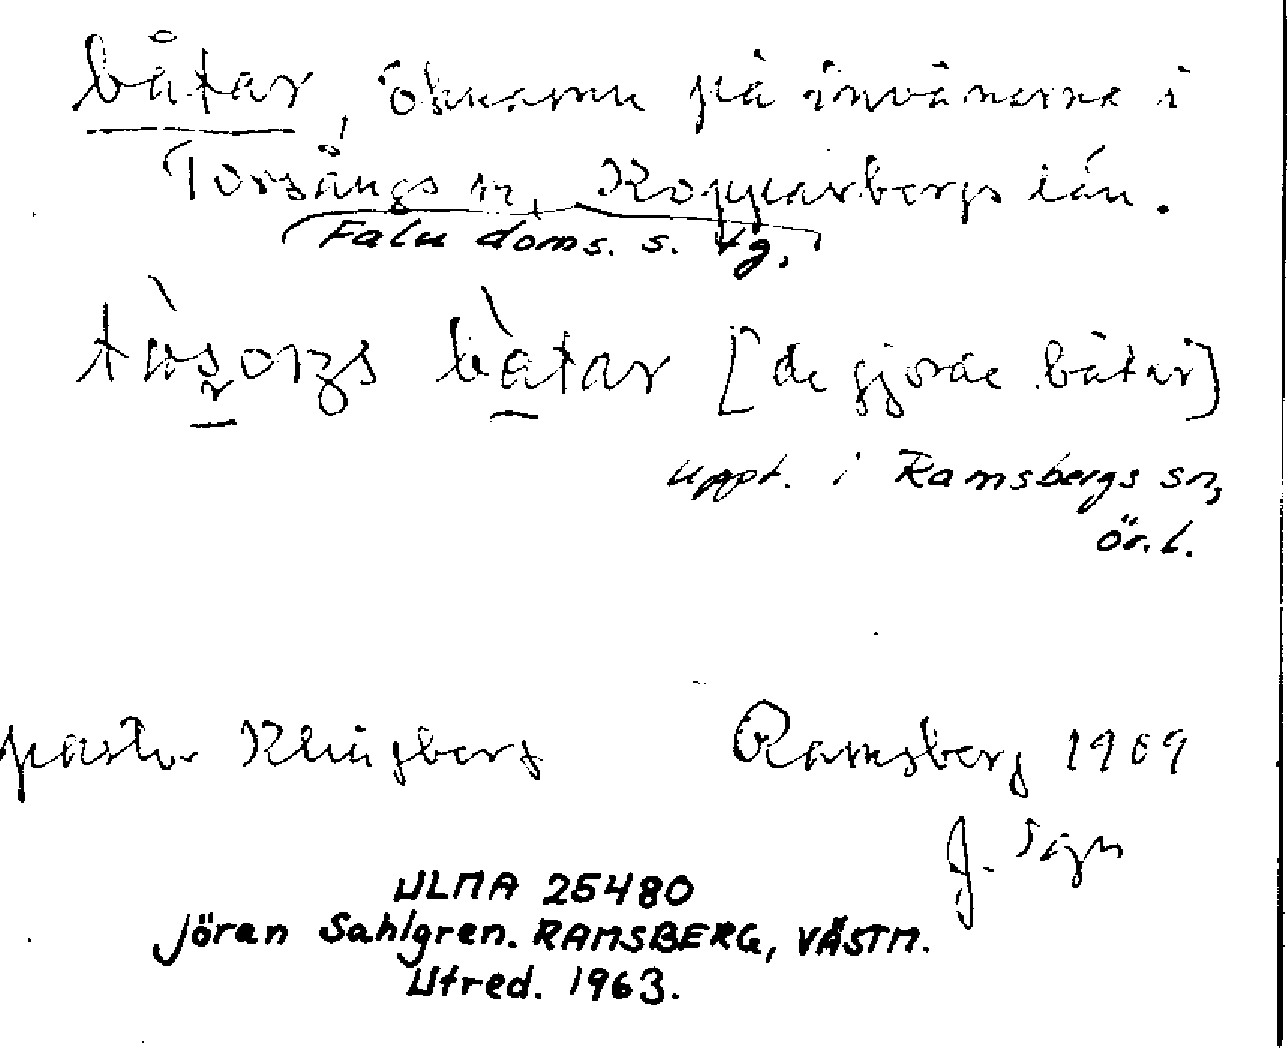 båtar, öknamn på invånarna i
Torsångs sn, Kopparbergs län.
Falu doms. s. tg.
båtar [de gjorde båtar]
uppt. i Ramsbergs sn,
ör. l.
pastor Klingberg Ramsberg 1909
J. Sgn
ULMA 25480
Jöran Sahlgren. RAMSBERG, VÄSTM.
Utred. 1963.